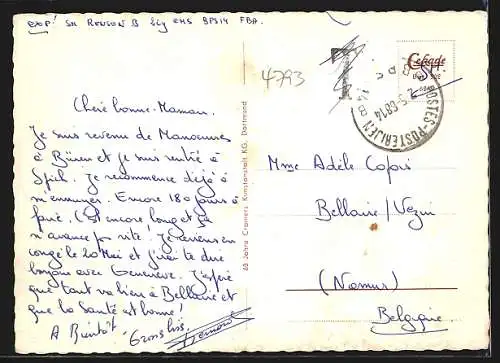 EXP: SM RENSON B Ecy EHS BPS14 FBA.
4793
T
Cekade
POSTES-POSTERIJEN
14 B
Chère bonne-Maman.
Je suis revenu de Manoeuvres
à Büren et je suis rentré à
Spich. Je recommence déjà à
m'ennuyer. Encore 180 jours à
faire. C'est encore long et ça
n'avance pas vite! Je reviens en
congé le 20 Mai et j'irai te dire
bonjour avec Geneviève. J'espère
que tout va bien à Bellaire et
que la Santé est bonne!
A Bientôt
Gros bis.
Bernard
65 Jahre Cramers Kunstanstalt KG, Dortmund
Mme Adèle
Bellaire/Vezin
(Namur)
Belgique.